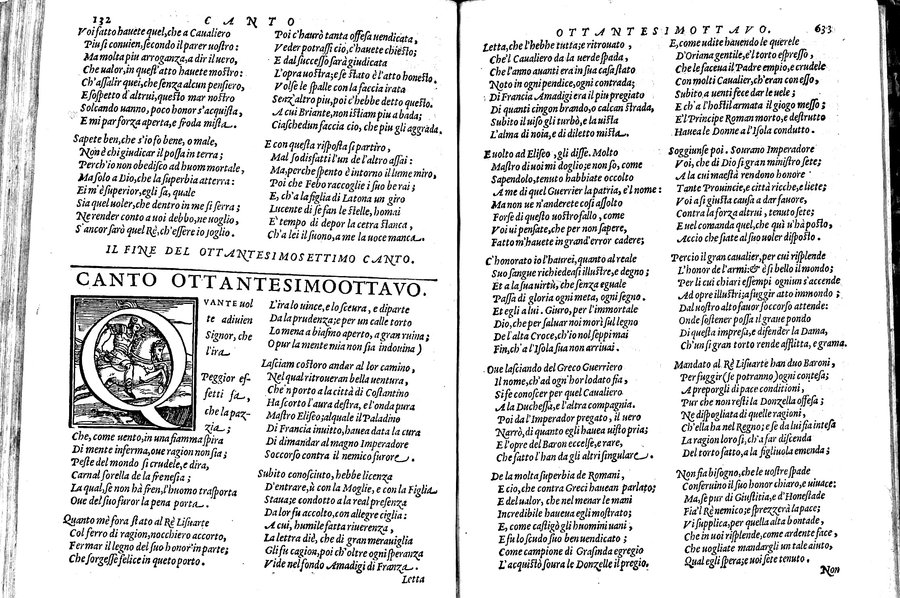 132 CANTO
Voi fatto hauete quel, che a Caualiero
Piu si conuien, secondo il parer uostro:
Ma molta piu arroganza, a dir il uero,
Che ualor, in quest'atto hauete mostro:
Ch'assalir quei, che senza alcun pensiero,
E sospetto d'altrui, questo mar nostro
Solcando uanno, poco honor s'acquista,
E mi par forza aperta, e froda mista.
Sapete ben, che s'io fo bene, o male,
Non è chi giudicar il possa in terra;
Perch'io non obedisco ad huom mortale,
Ma solo a Dio, che la superbia atterra:
Ei m'è superior, egli sa, quale
Sia quel uoler, che dentro in me si serra;
Ne render conto a uoi debbo, ne uoglio,
S'ancor sarò quel Rè, ch'essere io soglio.
Poi c'haurò tanta offesa uendicata,
Veder potrassi cio, c'hauete chiesto;
E dal successo sarà giudicata
L'opra uostra; e se stato è l'atto honesto.
Volse le spalle con la faccia irata
Senz'altro piu, poi c'hebbe detto questo.
A cui Briante, non istiam piu a bada;
Ciaschedun faccia cio, che piu gli aggrada.
E con questa risposta si partiro,
Mal sodisfatti l'un de l'altro assai:
Ma, perche spento è intorno il lume miro,
Poi che Febo raccoglie i suoi be rai;
E, ch'a la figlia di Latona un giro
Lucente di se fan le stelle, homai
E' tempo di depor la cetra stanca,
Ch'a lei il suono, a me la uoce manca.
IL FINE DEL OTTANTESIMOSETTIMO CANTO.
CANTO OTTANTESIMOOTTAVO.
QVANTE uol
te adiuien
Signor, che
l'ira
Peggior ef-
fetti fa,
che la paz-
zia;
Che, come uento, in una fiamma spira
Di mente inferma, oue ragion non sia;
Peste del mondo si crudele, e dira,
Carnal sorella de la frenesia;
La qual, se non hà fren, l'huomo trasporta
Oue del suo furor la pena porta.
Quanto mè fora stato al Rè Lisuarte
Col ferro di ragion, nocchiero accorto,
Fermar il legno del suo honor'in parte;
Che sorgesse felice in queto porto.
L'ira lo uince, e lo sceura, e diparte
Da la prudenza; e per un calle torto
Lo mena a biasmo aperto, a gran ruina;
O pur la mente mia non fia indouina)
Lasciam costoro andar al lor camino,
Nel qual ritroueran bella uentura,
Che'n porto a la città di Costantino
Ha scorto l'aura destra, e l'onda pura
Mastro Eliseo; al quale il Paladino
Di Francia inuitto, hauea data la cura
Di dimandar al magno Imperadore
Soccorso contra il nemico furore.
Subito conosciuto, hebbe licenza
D'entrare, ù con la Moglie, e con la Figlia
Staua; e condotto a la real presenza
Da lor fu accolto, con allegre ciglia:
A cui, humile fatta riuerenza,
La lettra diè, che di gran merauiglia
Gli fu cagion, poi ch'oltre ogni speranza
Vide nel fondo Amadigi di Franza.
Letta
OTTANTESIMOTTAVO. 633
Letta, che l'hebbe tutta; e ritrouato,
Che'l Caualiero da la uerde spada,
Che l'anno auanti era in sua casa stato
Noto in ogni pendice, ogni contrada;
Di Francia Amadigi era il piu pregiato
Di quanti cingon brando, o calcan strada,
Subito il uiso gli turbò, e la uista
L'alma di noia, e di diletto mista.
E uolto ad Eliseo, gli disse. Molto
Mastro di uoi mi doglio; e non so, come
Sapendolo, tenuto habbiate occolto
A me di quel Guerrier la patria, e'l nome:
Ma non ue n'anderete cosi assolto
Forse di questo uostro fallo, come
Voi ui pensate, che per non sapere,
Fatto m'hauete in grand'error cadere;
C'honorato io l'haurei, quanto al reale
Suo sangue richiedeasi illustre, e degno;
Et a la sua uirtù, che senza eguale
Passa di gloria ogni meta, ogni segno.
Et egli a lui. Giuro, per l'immortale
Dio, che per saluar noi morì sul legno
De l'alta Croce, ch'io nol seppi mai
Fin, ch'a l'Isola sua non arriuai.
Oue lasciando del Greco Guerriero
Il nome, ch'ad ogn'hor lodato fia,
Si fe conoscer per quel Caualiero
A la Duchessa, e l'altra compagnia.
Poi da l'Imperador pregato, il uero
Narrò, di quanto egli hauea uisto pria;
E l'opre del Baron eccelse, e rare,
Che fatto l'han da gli altri singulare.
De la molta superbia de Romani,
E cio, che contra Greci hauean parlato;
E del ualor, che nel menar le mani
Incredibile haueua egli mostrato;
E, come castigò gli huomini uani,
E fu lo scudo suo ben uendicato;
Come campione di Grasinda egregio
L'acquistò soura le Donzelle il pregio.
E, come udite hauendo le querele
D'Oriana gentile, e'l torto espresso,
Che le faceua il Padre empio, e crudele
Con molti Caualier, ch'eran con esso,
Subito, a uenti fece dar le uele;
E ch'a l'hostil armata il giogo messo;
E'l Principe Roman morto, e destrutto
Hauea le Donne a l'Isola condutto.
Soggiunse poi. Sourano Imperadore
Voi, che di Dio si gran ministro sete;
A la cui maestà rendono honore
Tante Prouincie, e città ricche, e liete;
Voi a sì giusta causa a dar fauore,
Contra la forza altrui, tenuto sete;
E uel comanda quel, che quì u'hà posto,
Accio che siate al suo uoler disposto.
Percio il gran caualier, per cui risplende
L'honor de l'armi; & è sì bello il mondo;
Per li cui chiari essempi ogniun s'accende
Ad opre illustri; a fuggir atto immondo;
Dal uostro alto fauor soccorso attende:
Onde sostener possa il graue pondo
Di questa impresa, e difender la Dama,
Ch'un si gran torto rende afflitta, e grama.
Mandato al Rè Lisuarte han duo Baroni,
Per fuggir (se potranno) ogni contesa;
A preporgli di pace conditioni,
Pur che non resti la Donzella offesa;
Ne dispogliata di quelle ragioni,
Ch'ella ha nel Regno; e se da lui fia intesa
La ragion loro sì, ch'a far discenda
Del torto fatto, a la figliuola emenda;
Non fia bisogno, che le uostre spade
Conseruino il suo honor chiaro, e uiuace:
Ma, se pur di Giustitia, e d'Honestade
Fia'l Rè nemico; e sprezzerà la pace;
Vi supplica, per quella alta bontade,
Che in uoi risplende, come ardente face,
Che uogliate mandargli un tale aiuto,
Qual egli spera; e uoi sete tenuto.
Non